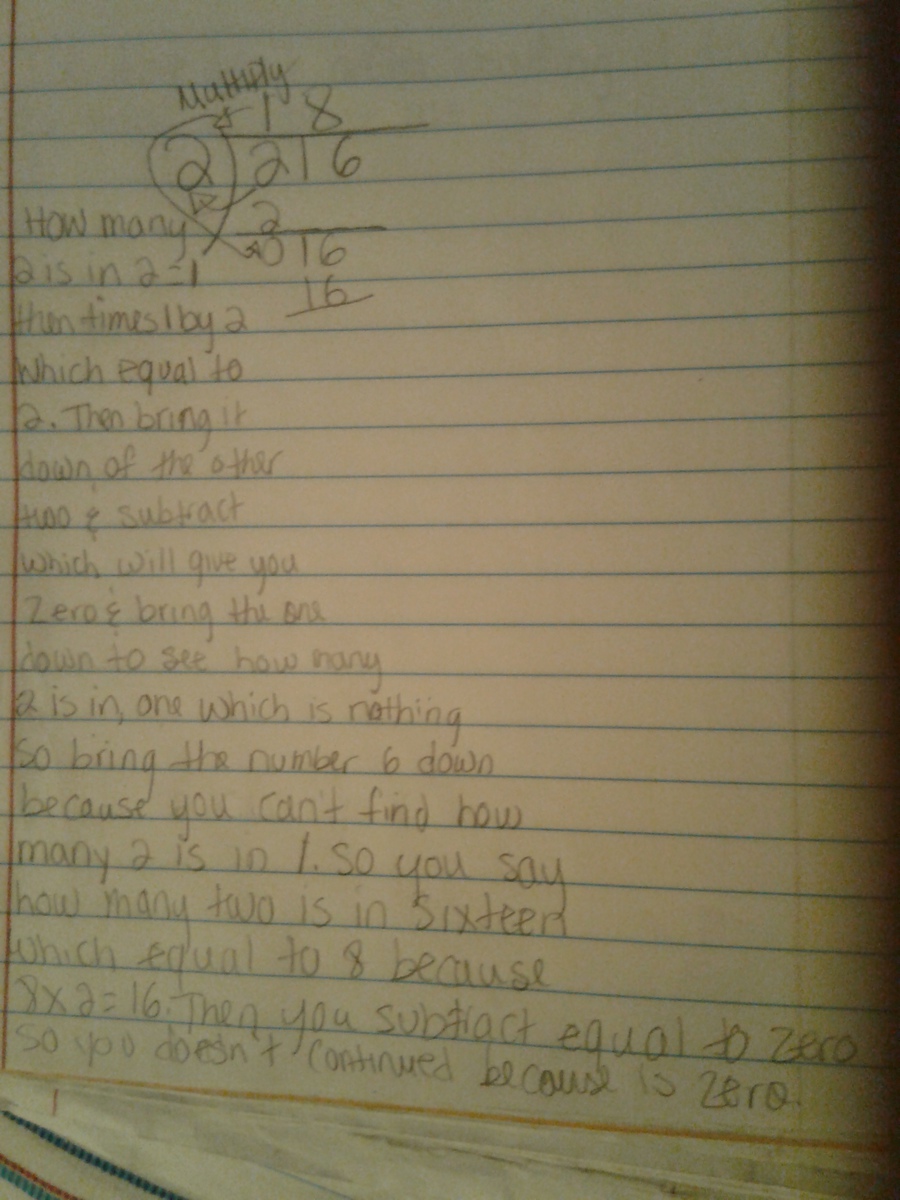 Multiply
1 8
2 216
2
016
16
How many
2 is in 2=1
then times 1 by 2
which equal to
2. Then bring it
down of the other
two & subtract
which will give you
Zero & bring the one
down to see how many
2 is in, one which is nothing
so bring the number 6 down
because you can't find how
many 2 is in 1. So you say
how many two is in Sixteen
which equal to 8 because
8x2=16. Then you subtract equal to zero
so you doesn't continued because is zero.